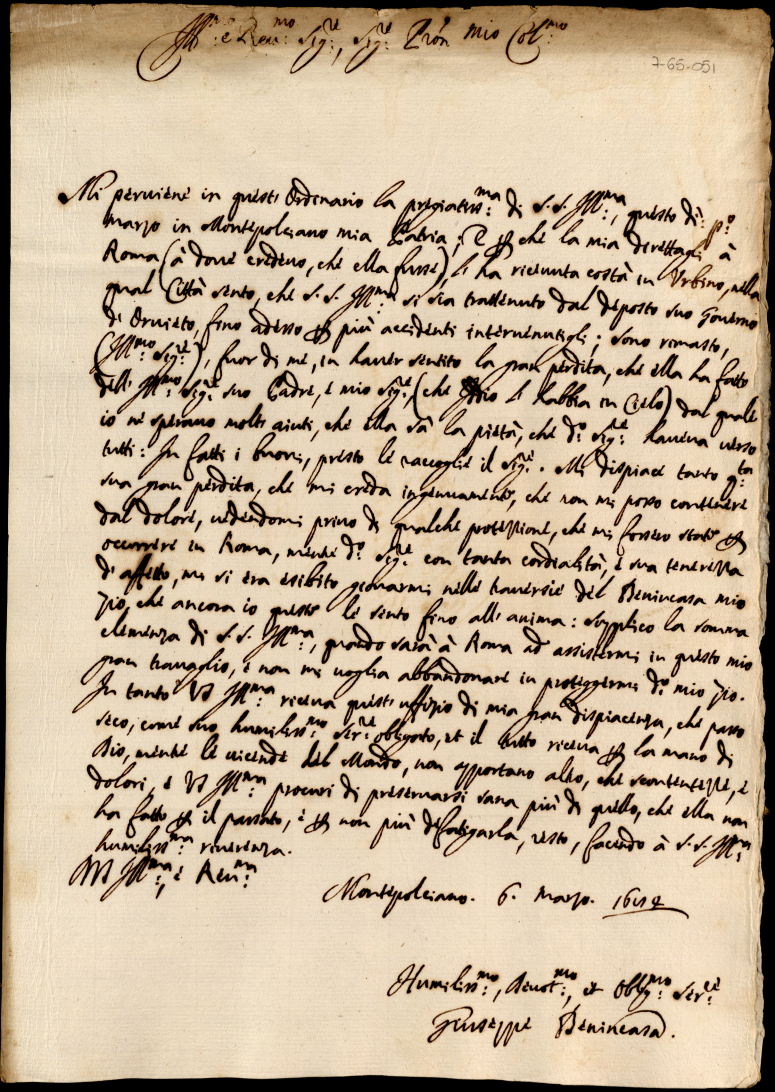 Ill.mo e Rev.mo Sig.re, Sig.re Pron mio Col.mo
7-65-051
Mi perviene in questo Ordenario la pregiatiss.ma di S.S. Ill.ma, questo dì p.o
marzo in Montepolciano mia Patria; E che la mia direttagli à
Roma (à dove credevo, che ella fusse), l'ha ricevuta costà in Urbino, nella
qual Città sento, che S.S. Ill.ma si sia trattenuto dal deposto suo Governo
di Orvieto, fino adesso più accidenti intervenutigli; sono rimasto,
(Ill.mo Sig.re), fuor di me, in haver sentito la gran perdita, che ella ha fatto
dell' Ill.mo Sig.re suo Padre, e mio Sig.re, (che Iddio l'habbia in Cielo) dal quale
io ne speravo molti aiuti, che ella sà la pietà, che d.o Sig.re haveva verso
tutti: In fatti i buoni, presto le raccoglie il Sig.re. Mi dispiace tanto q.ta
sua gran perdita, che mi creda ingenuamente, che non mi posso contenere
dal dolore, vedendomi privo di qualche protezzione, che mi fossero state
occorrere in Roma, mentre d.o Sig.re con tanta cordialità, e sua tenerezza
d'affetto, me si era esibito giovarmi nelle traversie del Benincasa mio
zio, che ancora io queste le sento fino all'anima: supplico la somma
clemenza di S.S. Ill.ma, quando sarà à Roma ad assistermi in questo mio
gran travaglio, e non mi voglia abbandonare in proteggermi d.o mio zio.
In tanto VS Ill.ma riceva questi uffizio di mia gran dispiacenza, che passo
seco, come suo humiliss.mo Ser.re obligato, et il tutto riceva la mano di
Dio, mentre le vicende del Mondo, non apportano altro, che scontentezze, e
dolori, e VS Ill.ma procuri di preservarsi sana più di quello, che ella non
ha fatto il passato, e non più defatigarla, resto, facendo à S.S. Ill.ma
humiliss.ma riverenza.
DVS Ill.ma, e Rev.ma
Montepolciano. 6. marzo.
Humiliss.mo, Devot.mo, et Oblig.mo Ser.re
Giuseppe Benincasa.